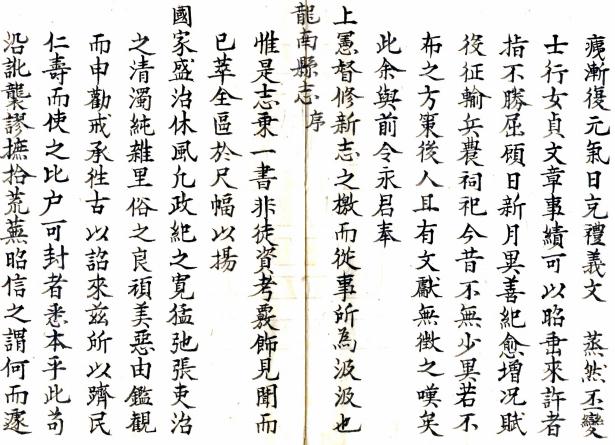 痍漸復元氣日充禮義文　蒸然丕變
士行女貞文章事績可以昭垂來許者
指不勝屈頋日新月異善紀愈增况賦
後征輸兵農祠祀今昔不無少異若不
布之方策後人且有文獻無徵之嘆矣
此余與前令永君奉
上憲督修新志之檄而從事所為汲汲也
龍南縣志序
惟是志乘一書非徒資考覈飾見聞而
已萃全區於尺幅以揚
國家盛治休風凢政紀之寬猛弛張吏治
之清濁純雜里俗之良頑美惡由鑑觀
而申勸戒承徃古以詔來兹所以躋民
仁壽而使之比户可封者悉本乎此茍
沿訛襲謬摭拾荒蕪昭信之謂何而遽